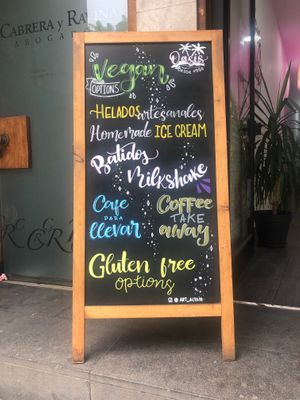 CABRERA Y RA
ABOGA
Oasis
Vegan
OPTIONS
HELADOS artesanales
Homemade ICE CREAM
Batidos
Milkshake
Cafe
PARA
llevar
Coffee
TAKE
away
Gluten free
options